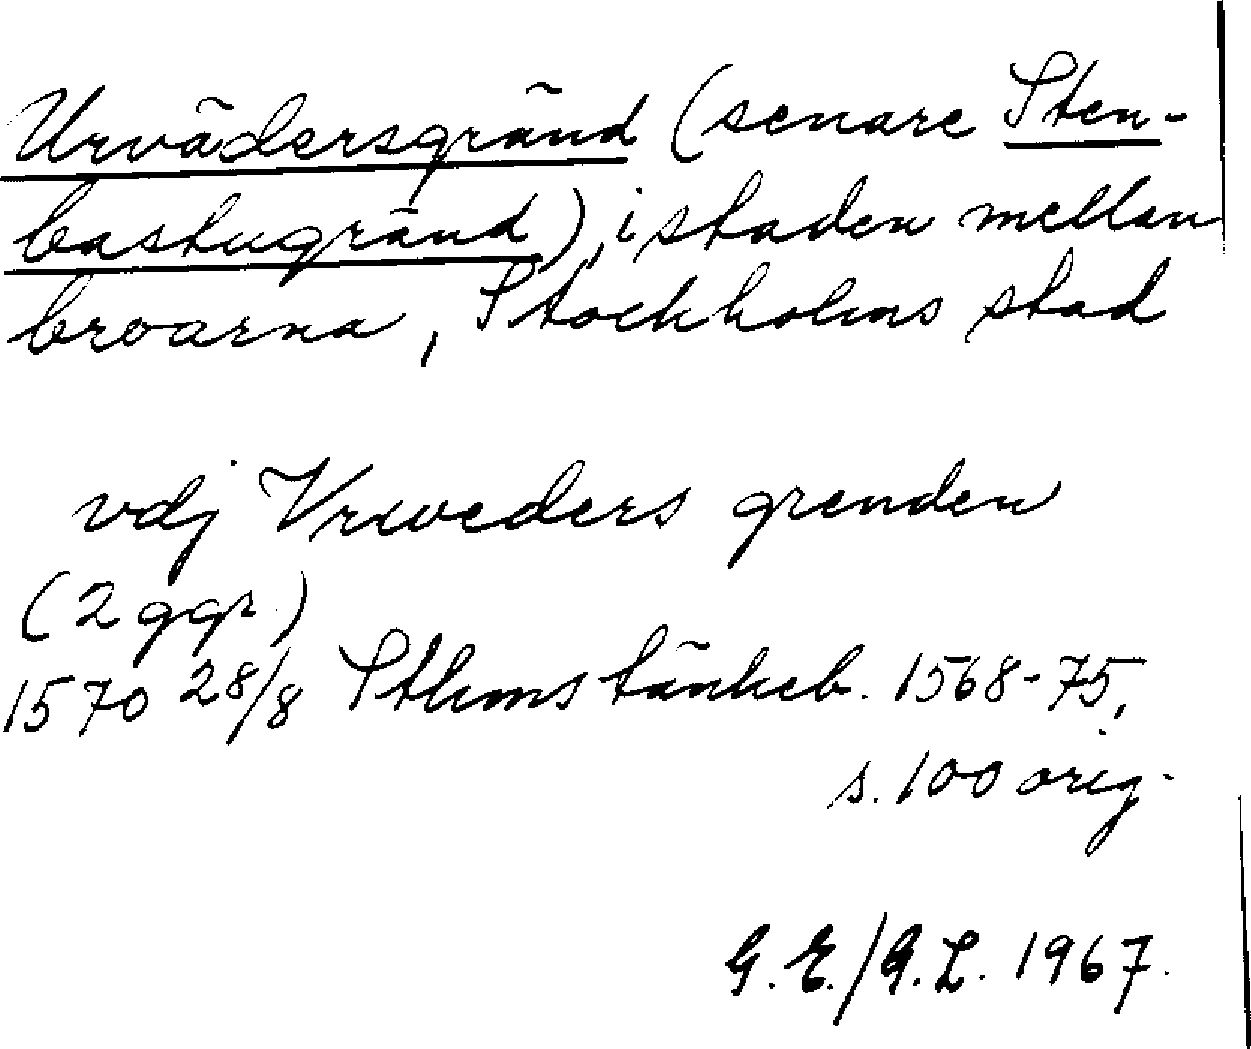 Urvädersgränd (senare Sten-
bastugränd), i staden mellan
broarna, Stockholms stad
vdj Vrweders grenden
(2 ggr.)
1570 28/8 Sthlms tänkeb. 1568-75,
s. 100 orig.
G.E./G.L. 1967.